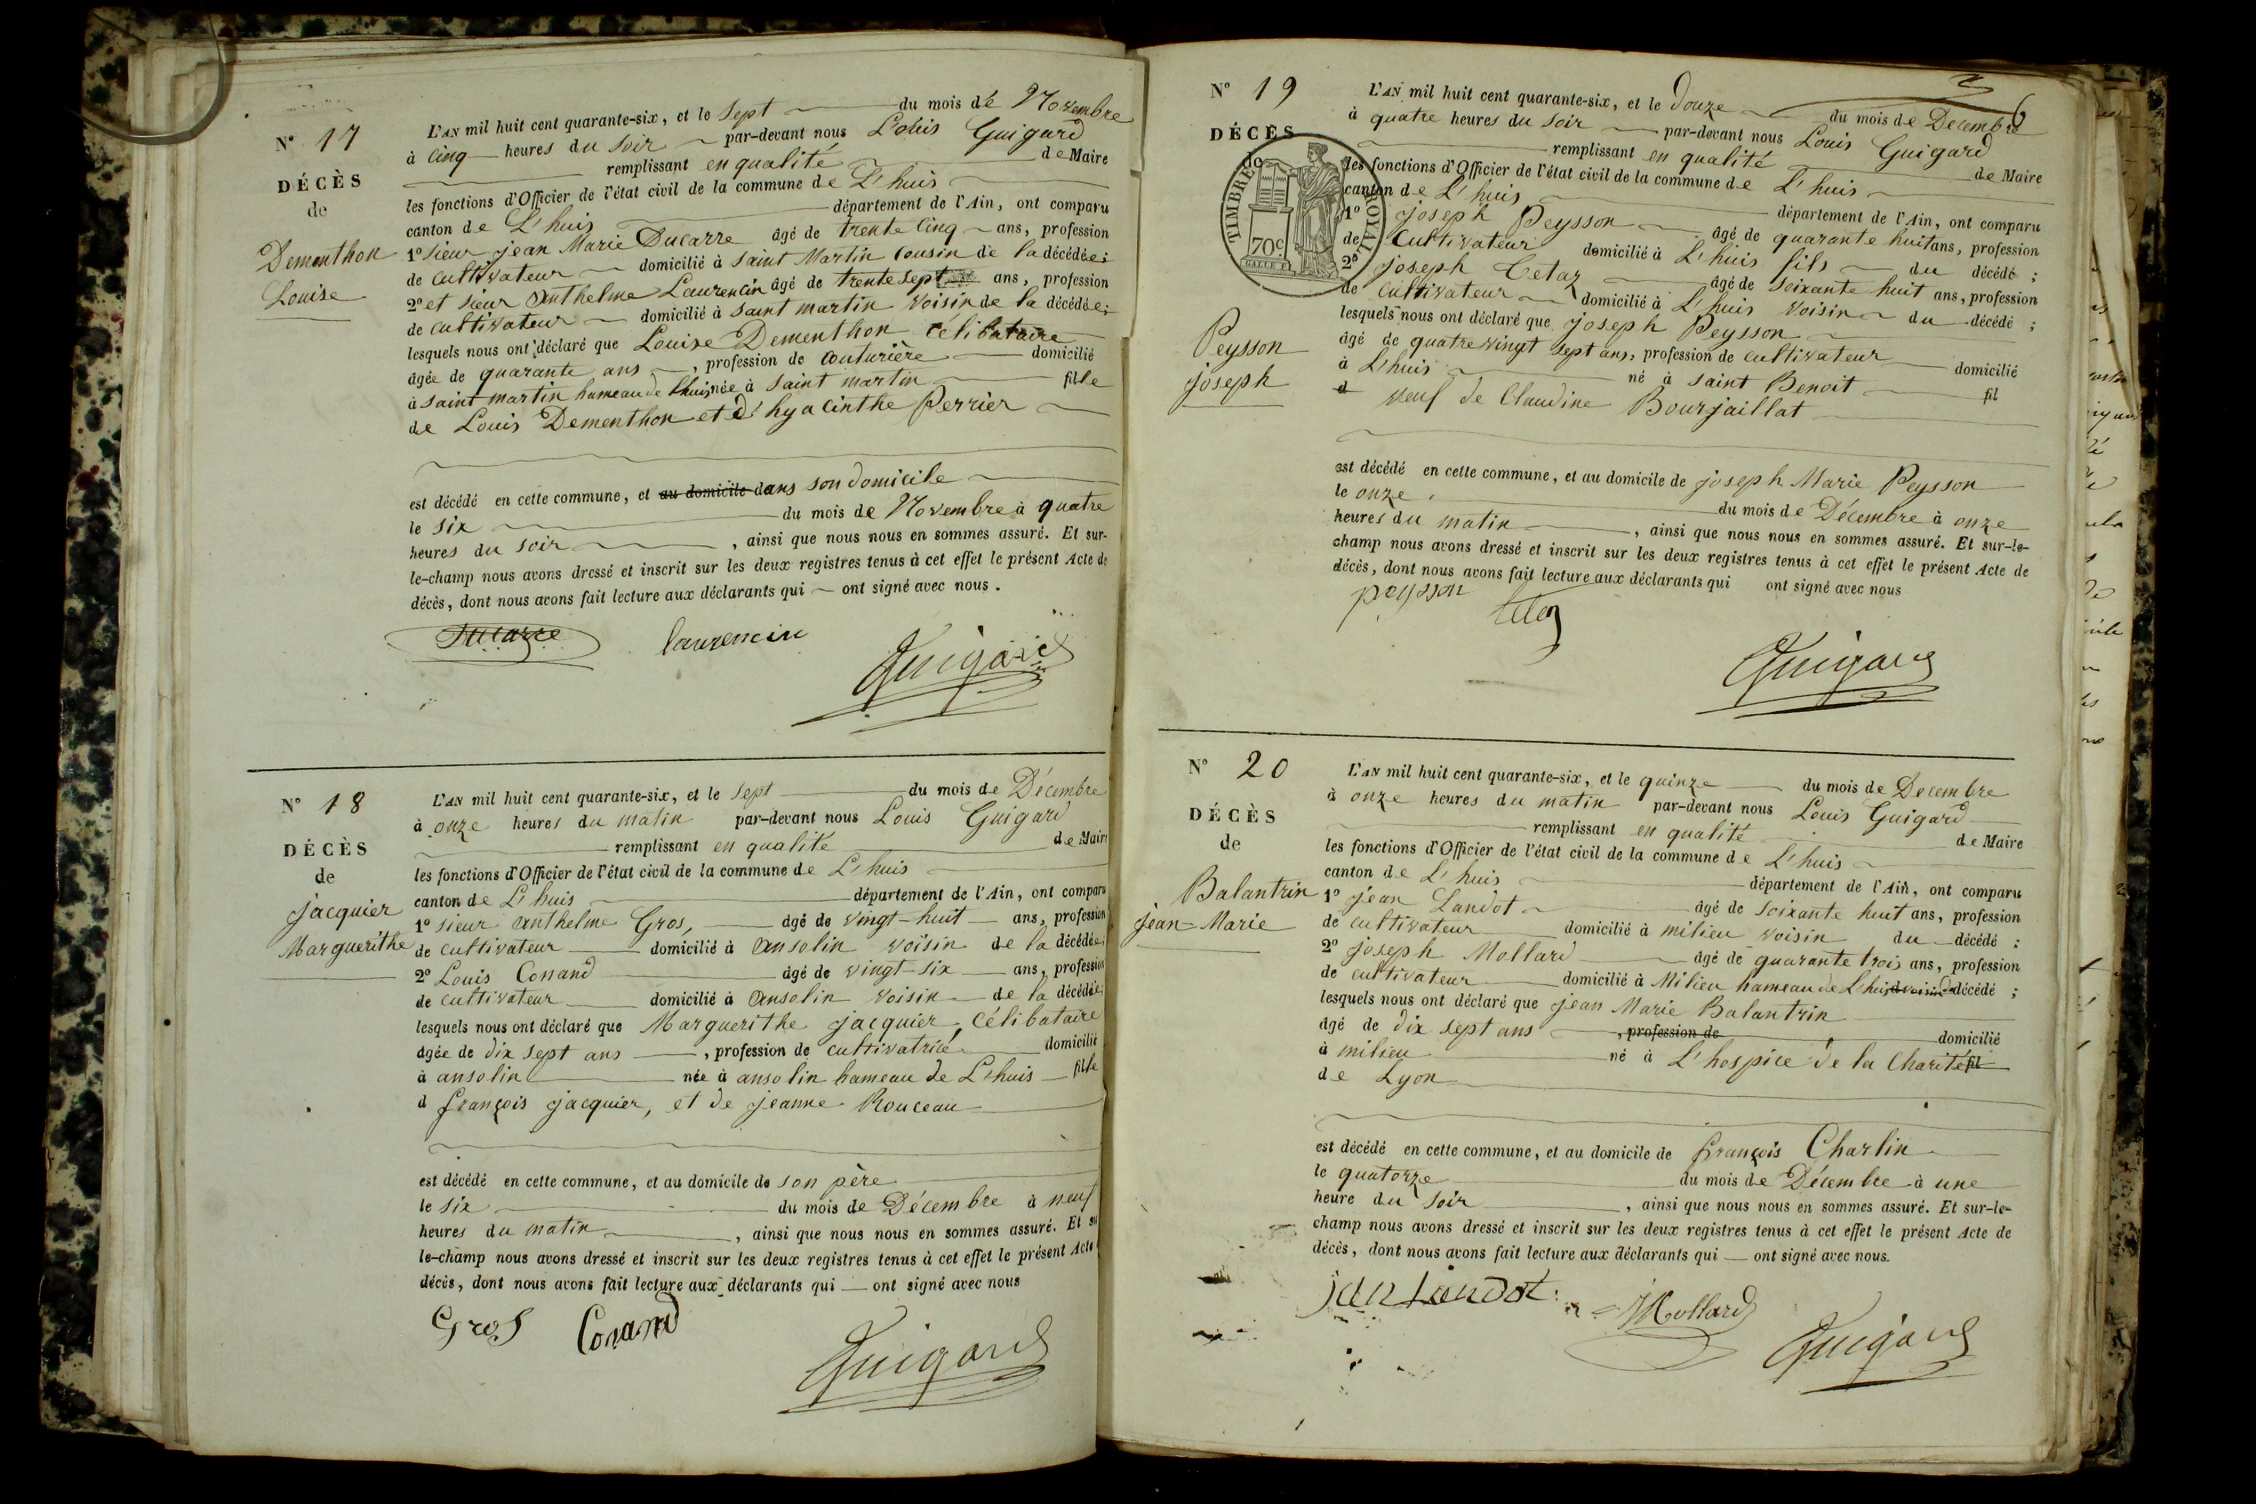 N° 17
DÉCÈS
de
Dementhon
Louise
L'AN mil huit cent quarante-six, et le sept du mois de Novembre
à cinq heures du soir par-devant nous Louis Guigard
remplissant en qualité de Maire
les fonctions d'Officier de l'état civil de la commune de L'huis
canton de L'huis département de l'Ain, ont comparu
1° sieur jean Marie Ducarre âgé de trente cinq ans, profession
de cultivateur domicilié à saint Martin cousin de la décédée;
2° et sieur Anthelme Laurencin âgé de trente sept ans, profession
de cultivateur domicilié à saint martin voisin de la décédée;
lesquels nous ont déclaré que Louise Dementhon célibataire
âgée de quarante ans, profession de couturière domicilié
à saint martin hameau de L'huis née à saint martin fille
de Louis Dementhon et d'hyacinthe Perrier
est décédé en cette commune, et au domicile dans son domicile
le six du mois de Novembre à quatre
heures du soir, ainsi que nous nous en sommes assuré. Et sur-
le-champ nous avons dressé et inscrit sur les deux registres tenus à cet effet le présent Acte de
décès, dont nous avons fait lecture aux déclarants qui ont signé avec nous.
Ducarre laurencin Guigard
N° 18
DÉCÈS
de
jacquier
Marguerithe
L'AN mil huit cent quarante-six, et le sept du mois de Décembre
à onze heures du matin par-devant nous Louis Guigard
remplissant en qualité de Maire
les fonctions d'Officier de l'état civil de la commune de L'huis
canton de L'huis département de l'Ain, ont comparu
1° sieur Anthelme Gros, âgé de vingt-huit ans, profession
de cultivateur domicilié à Ansolin voisin de la décédée;
2° Louis Conand âgé de vingt-six ans, profession
de cultivateur domicilié à Ansolin voisin de la décédée;
lesquels nous ont déclaré que Marguerithe jacquier, célibataire
âgée de dix sept ans, profession de cultivatrice domicilié
à ansolin née à ansolin hameau de L'huis fille
d françois jacquier, et de jeanne Rouceau
est décédé en cette commune, et au domicile de son père
le six du mois de Décembre à neuf
heures du matin, ainsi que nous nous en sommes assuré. Et sur
le-champ nous avons dressé et inscrit sur les deux registres tenus à cet effet le présent Acte
décès, dont nous avons fait lecture aux déclarants qui ont signé avec nous
Gros Conand Guigard
6
N° 19
DÉCÈS
de
TIMBRE ROYAL
70c
Peysson
joseph
L'AN mil huit cent quarante-six, et le douze du mois de Decembre
à quatre heures du soir par-devant nous Louis Guigard
remplissant en qualité de Maire
les fonctions d'Officier de l'état civil de la commune de L'huis
canton de L'huis département de l'Ain, ont comparu
1° joseph Peysson âgé de quarante huit ans, profession
de cultivateur domicilié à L'huis fils du décédé;
2° joseph Cetaz âgé de soixante huit ans, profession
de cultivateur domicilié à L'huis voisin du décédé;
lesquels nous ont déclaré que joseph Peysson
âgé de quatre vingt sept ans, profession de cultivateur domicilié
à L'huis né à saint Benoit fil
d veuf de Claudine Bourjaillat
est décédé en cette commune, et au domicile de joseph Marie Peysson
le onze du mois de Décembre à onze
heures du matin, ainsi que nous nous en sommes assuré. Et sur-le-
champ nous avons dressé et inscrit sur les deux registres tenus à cet effet le présent Acte de
décès, dont nous avons fait lecture aux déclarants qui ont signé avec nous
peysson Guigard
N° 20
DÉCÈS
de
Balantrin
jean-Marie
L'AN mil huit cent quarante-six, et le quinze du mois de Decembre
à onze heures du matin par-devant nous Louis Guigard
remplissant en qualité de Maire
les fonctions d'Officier de l'état civil de la commune de L'huis
canton de L'huis département de l'Ain, ont comparu
1° jean Landot âgé de soixante huit ans, profession
de cultivateur domicilié à milieu voisin du décédé;
2° joseph Mollard âgé de quarante trois ans, profession
de cultivateur domicilié à Milieu hameau de L'huis voisin du décédé;
lesquels nous ont déclaré que jean Marie Balantrin
âgé de dix sept ans, profession de domicilié
à milieu né à L'hospice de la Charité fil
de Lyon
est décédé en cette commune, et au domicile de françois Charlin
le quatorze du mois de Décembre à une
heure du soir, ainsi que nous nous en sommes assuré. Et sur-le-
champ nous avons dressé et inscrit sur les deux registres tenus à cet effet le présent Acte de
décès, dont nous avons fait lecture aux déclarants qui ont signé avec nous.
jan Landot Mollard Guigard